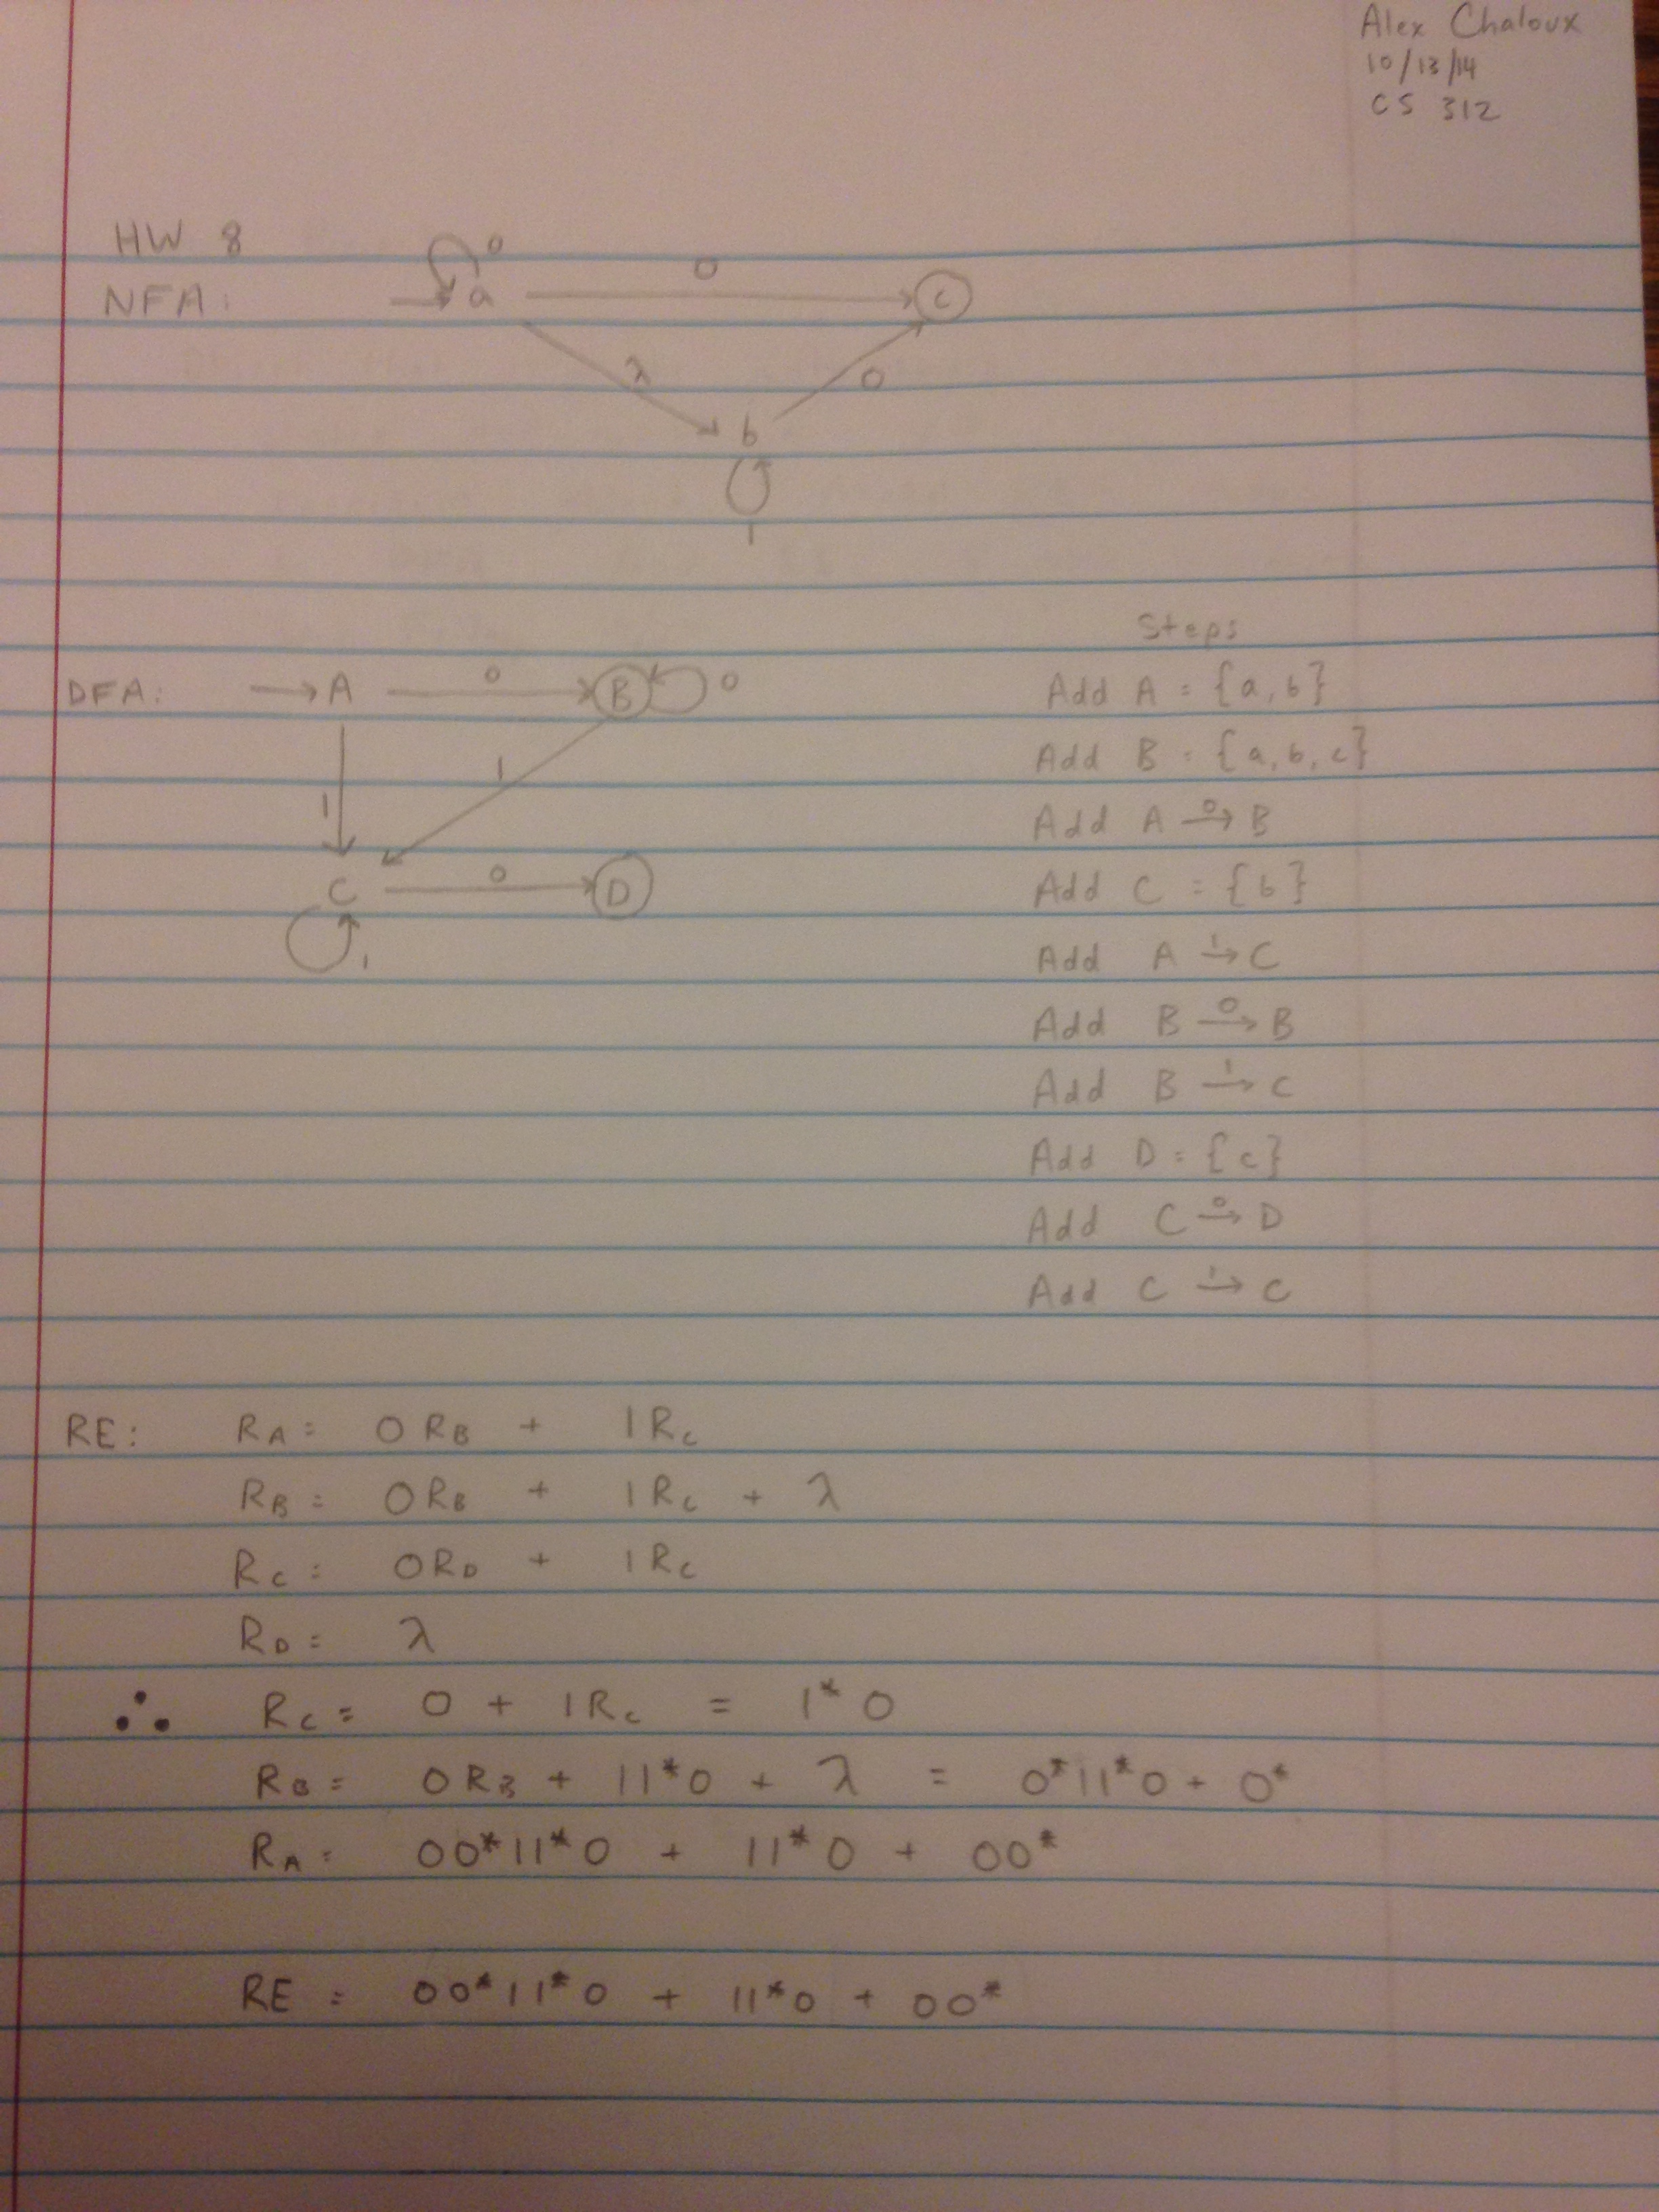 Alex Chaloux
10/13/14
CS 312
HW 8
NFA:
0
a
0
c
λ
0
b
1
Steps
DFA:
A
0
B
0
Add A = {a, b}
1
1
Add B = {a, b, c}
Add A 0→ B
C
0
D
1
Add C = {b}
Add A 1→ C
Add B 0→ B
Add B 1→ C
Add D = {c}
Add C 0→ D
Add C 1→ C
RE: RA = 0RB + 1RC
RB = 0RB + 1RC + λ
RC = 0RD + 1RC
RD = λ
∴ RC = 0 + 1RC = 1*0
RB = 0RB + 11*0 + λ = 0*11*0 + 0*
RA = 00*11*0 + 11*0 + 00*
RE = 00*11*0 + 11*0 + 00*